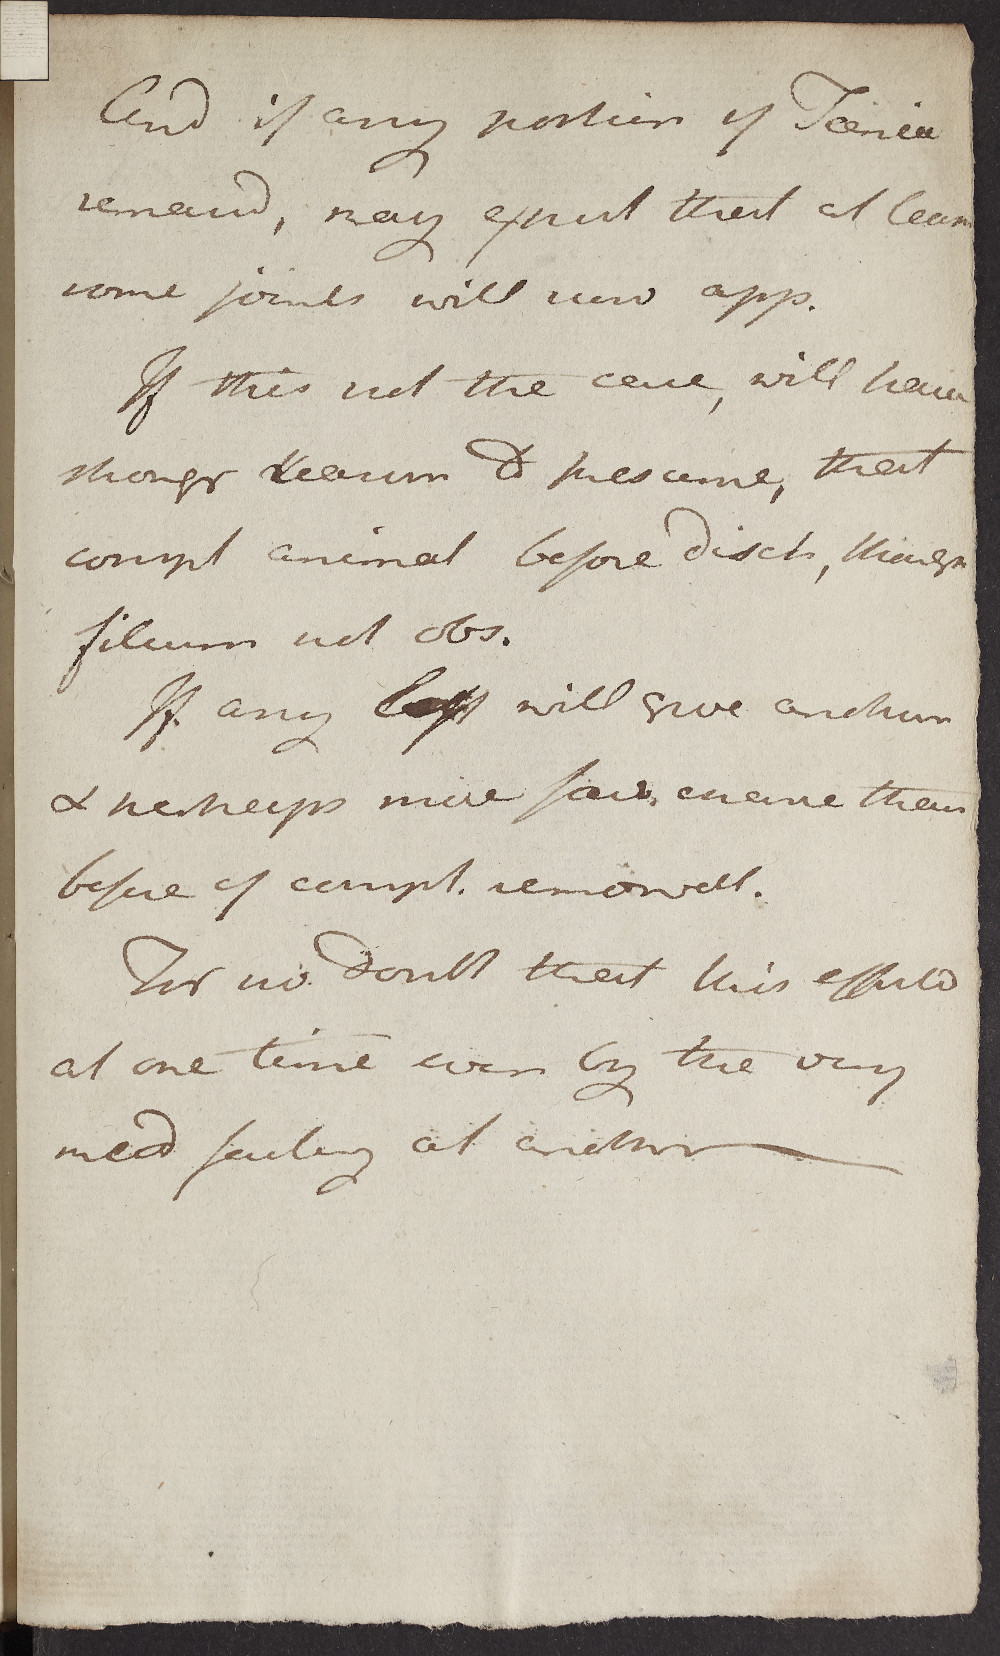 And if any portion of Taenia
remaind, may expect that at least
some joints will now app.
If this not the case, will have
stronger reason to presume, that
compl animal before disch, though
filum not obs.
If any left will give another
& perhaps more fav. chance than
before of compl. removall.
For no doubt that this effectd
at one time even by the very
med failing at another